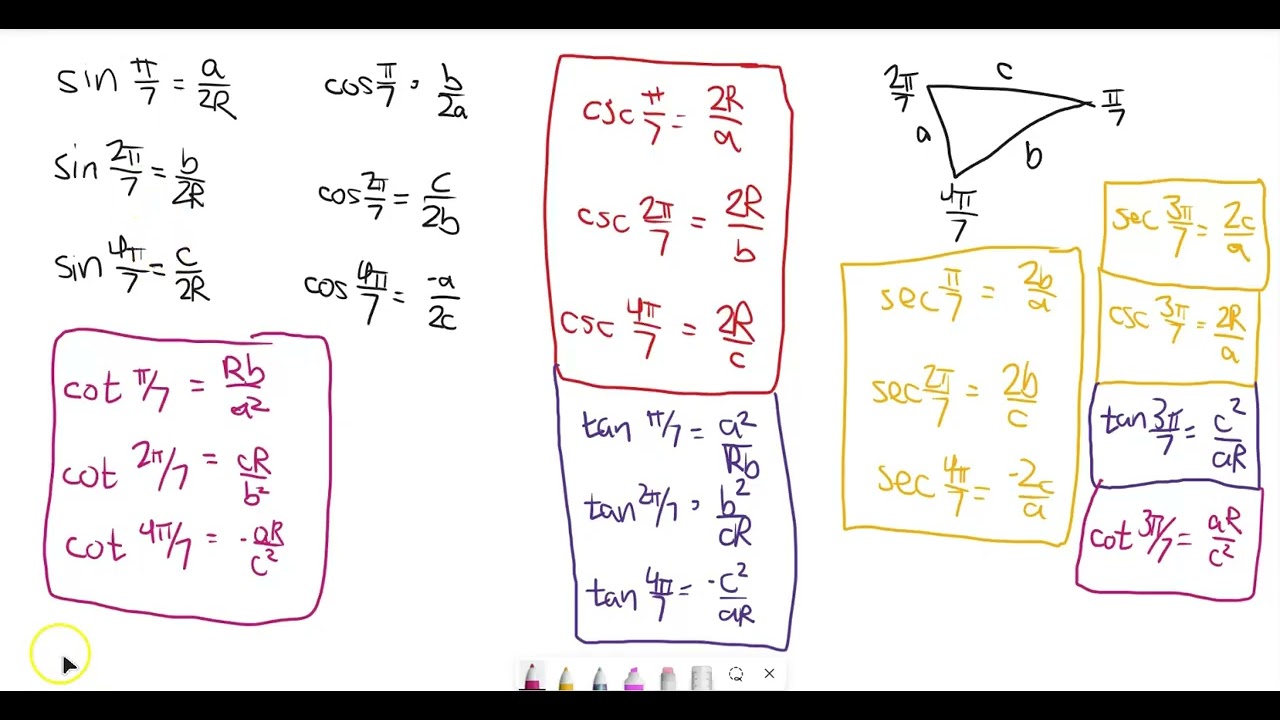 sin π/7 = a/2R
sin 2π/7 = b/2R
sin 4π/7 = c/2R
cos π/7 = b/2a
cos 2π/7 = c/2b
cos 4π/7 = -a/2c
cot π/7 = Rb/a²
cot 2π/7 = cR/b²
cot 4π/7 = -aR/c²
csc π/7 = 2R/a
csc 2π/7 = 2R/b
csc 4π/7 = 2R/c
tan π/7 = a²/Rb
tan 2π/7 = b²/cR
tan 4π/7 = -c²/aR
2π/7
c
π/7
a
b
4π/7
sec π/7 = 2b/a
sec 2π/7 = 2b/c
sec 4π/7 = -2c/a
sec 3π/7 = 2c/a
csc 3π/7 = 2R/a
tan 3π/7 = c²/aR
cot 3π/7 = aR/c²